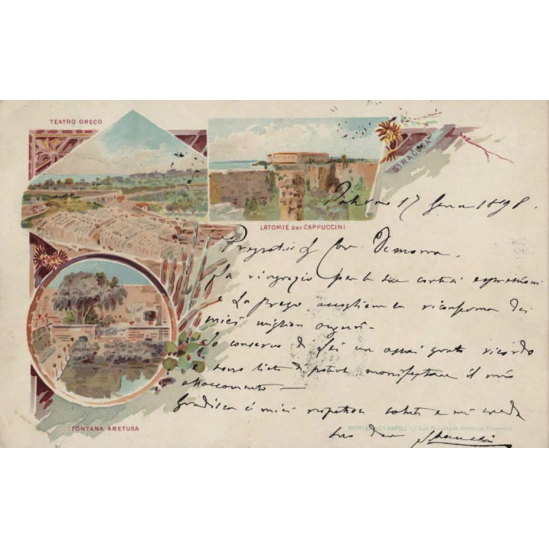 TEATRO GRECO
SIRACUSA
LATOMIE DEI CAPPUCCINI
Palermo 17 1898.
La ringrazio per le sue cortesi espressioni
e La prego accogliere la riconferma dei
miei migliori auguri.
Io conservo di Lei un assai grato ricordo
e sono lieto di poterle manifestare il mio
attaccamento —
Gradisca i miei rispettosi saluti e mi creda
FONTANA ARETUSA
suo dev